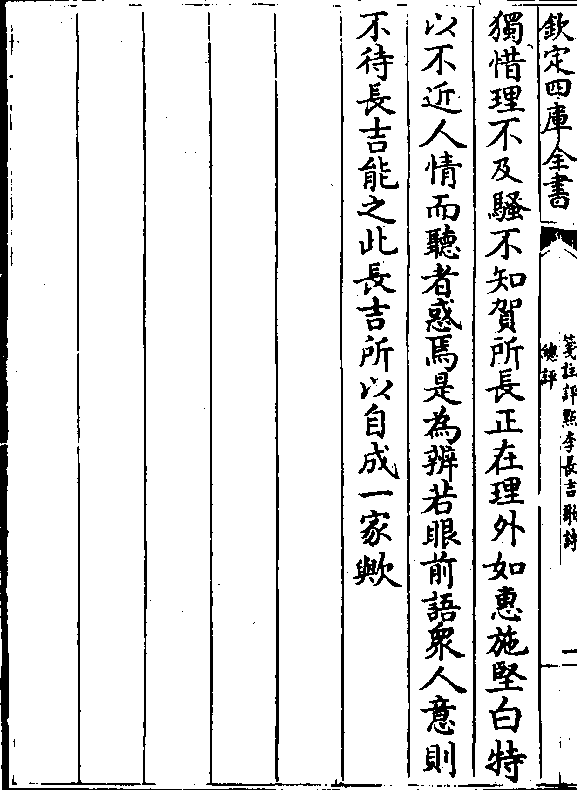 欽定四庫全書
箋註評點李長吉歌詩
總評
一
獨惜理不及騷不知賀所長正在理外如惠施堅白特
以不近人情而聽者惑焉是為辨若眼前語衆人意則
不待長吉能之此長吉所以自成一家歟